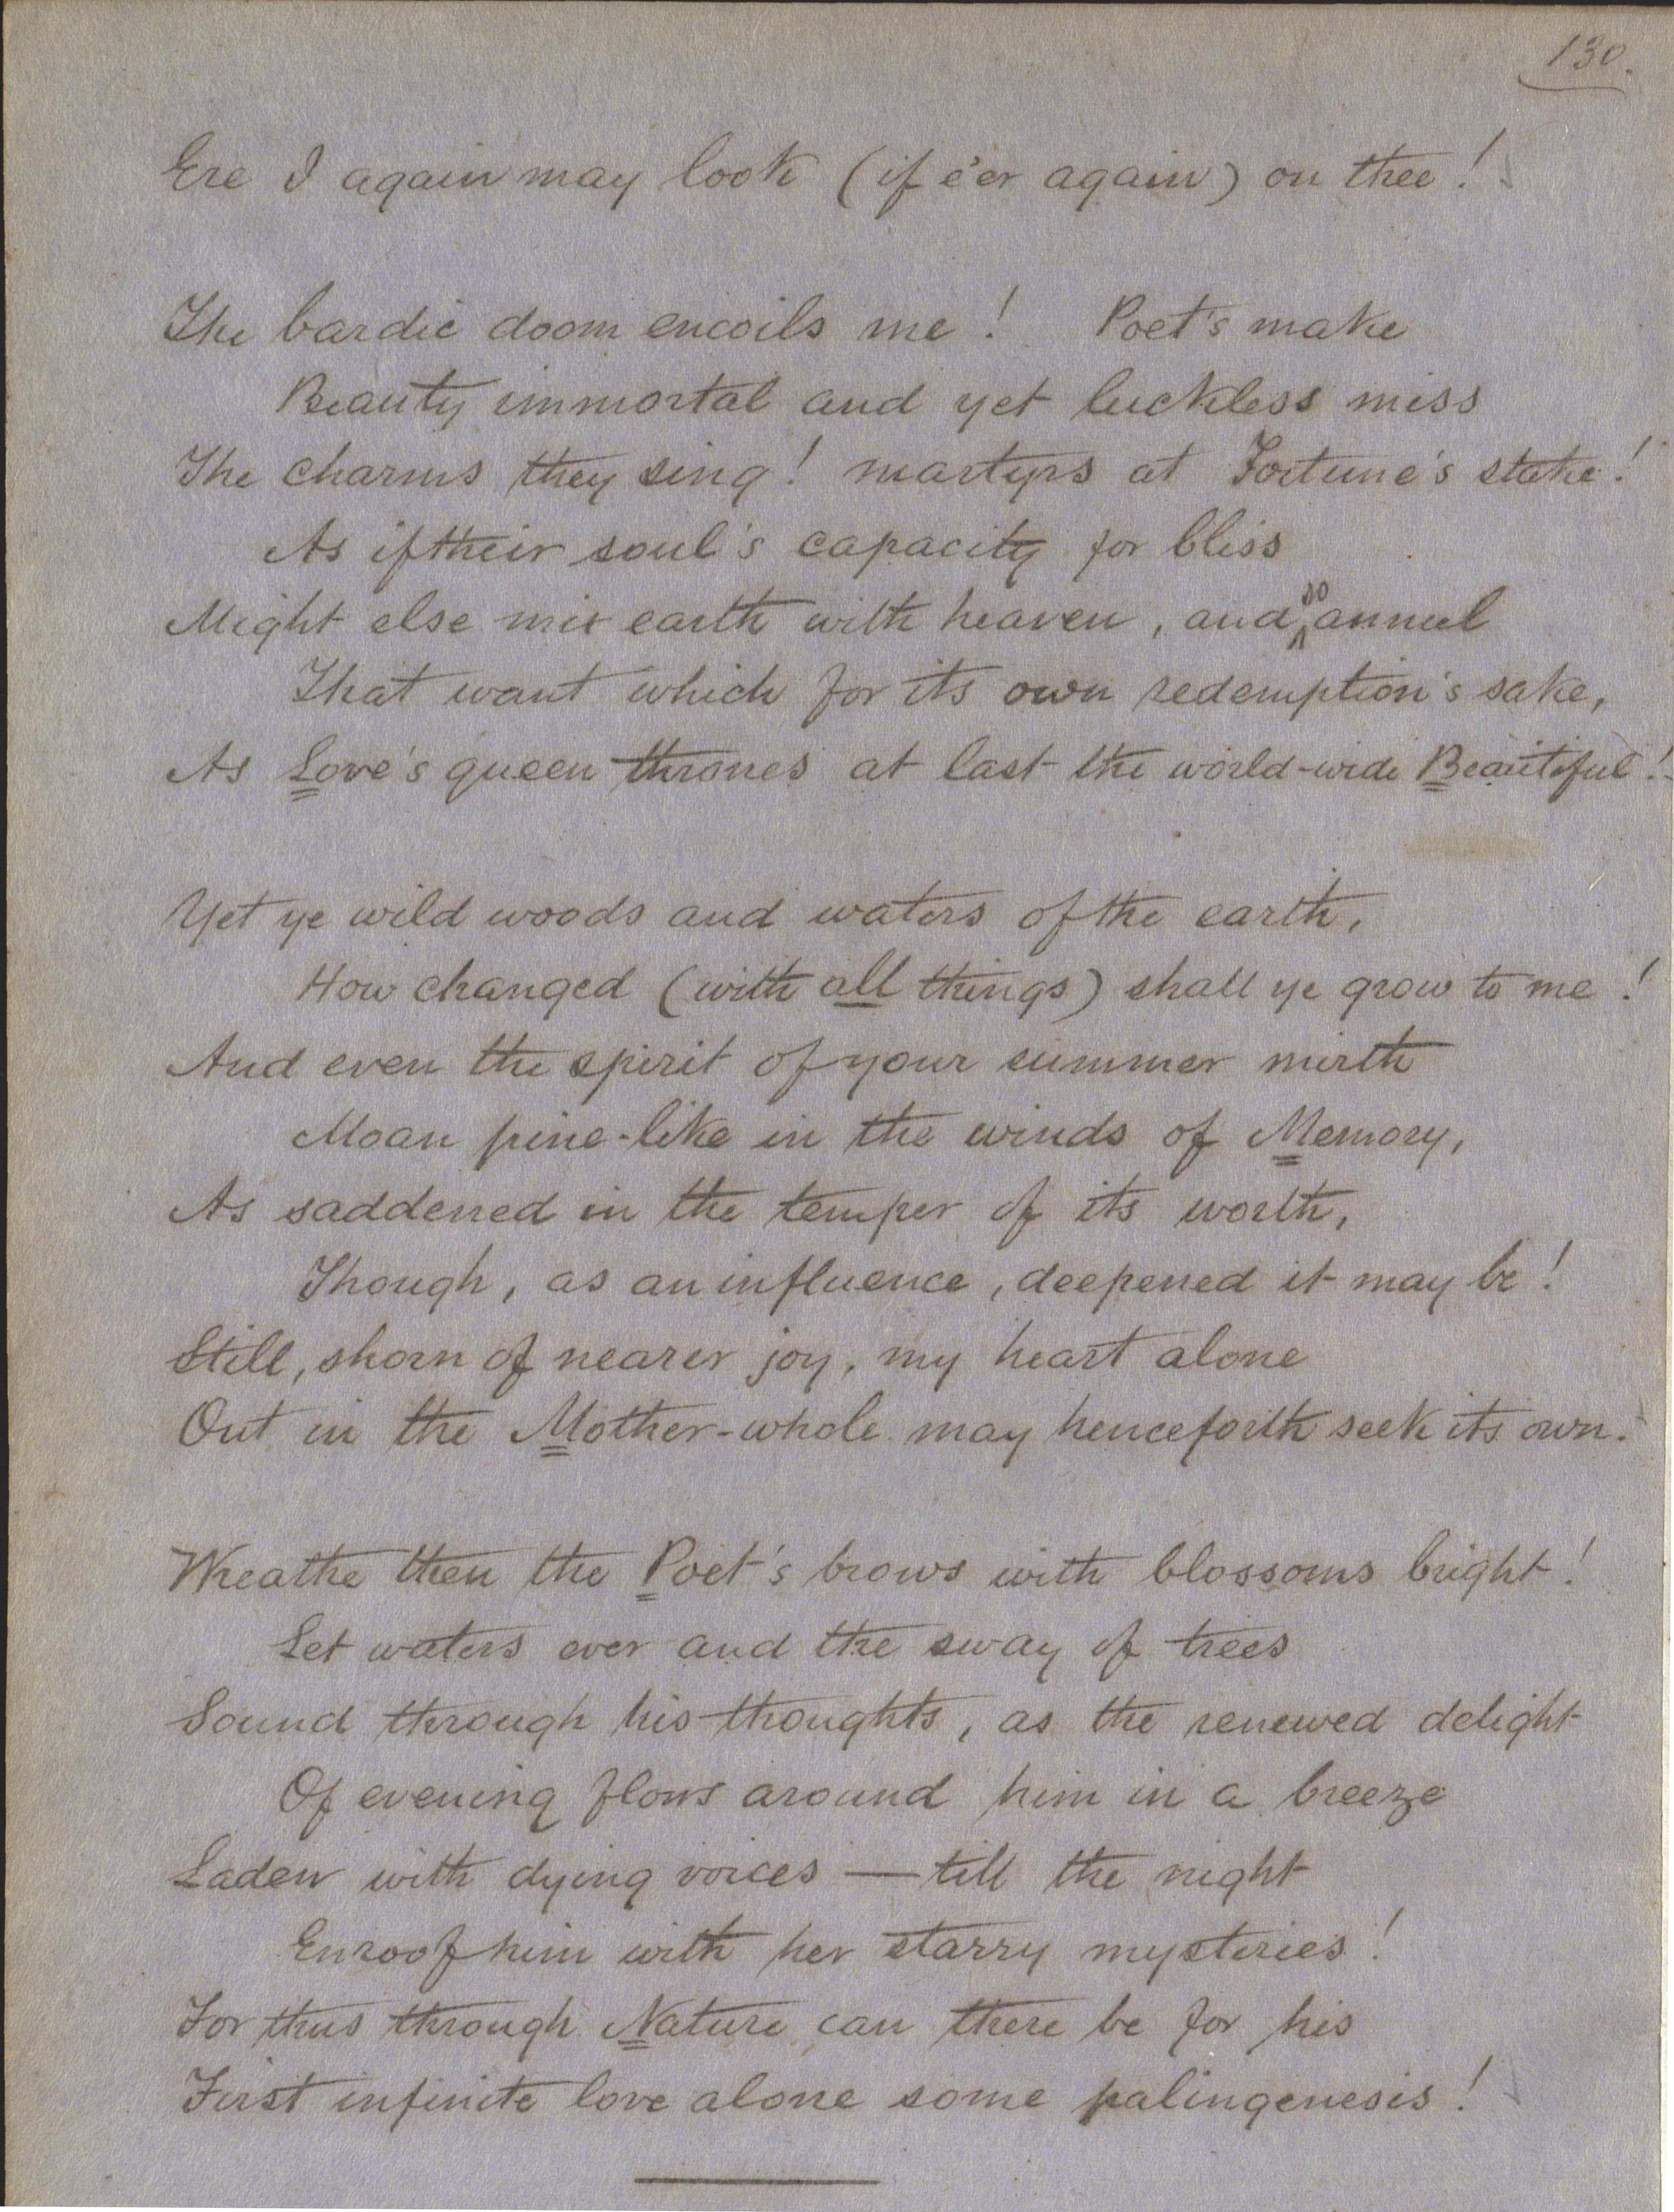 130.
Ere I again may look (if e'er again) on thee!
The bardic doom encoils me! Poet's make
Beauty immortal and yet luckless miss
The charms they sing! martyrs at Fortune's stake!
As if their soul's capacity for bliss
Might else mix earth with heaven, and so annul
That want which for its own redemption's sake,
As Love's queen thrones at last the world-wide Beautiful!
Yet ye wild woods and waters of the earth,
How changed (with all things) shall ye grow to me!
And even the spirit of your summer mirth
Moan pine-like in the winds of Memory,
As saddened in the temper of its worth,
Though, as an influence, deepened it may be!
Still, shorn of nearer joy, my heart alone
Out in the Mother-whole may henceforth seek its own.
Wreathe then the Poet's brows with blossoms bright!
Let waters ever and the sway of trees
Sound through his thoughts, as the renewed delight
Of evening flows around him in a breeze
Laden with dying voices — till the night
Enroof him with her starry mysteries!
For thus through Nature can there be for his
First infinite love alone some palingenesis!